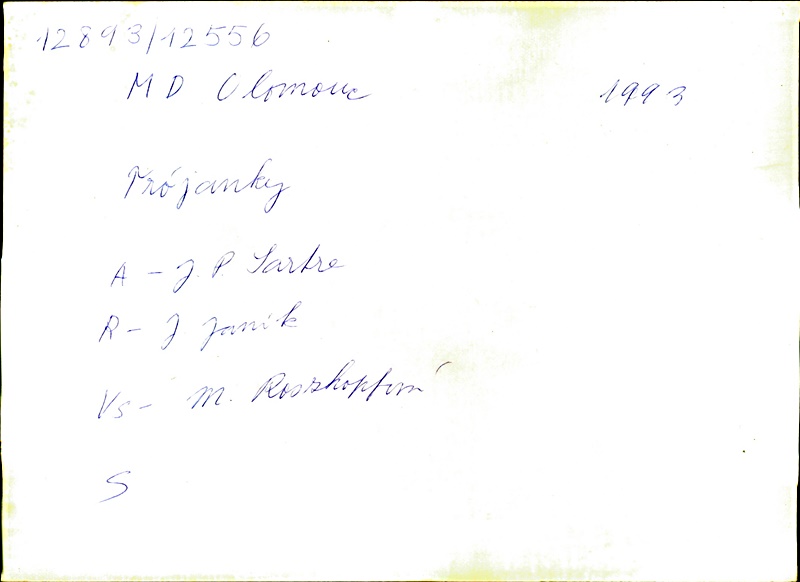 12893/12556
MD Olomouc 1993
Trójanky
A - J. P. Sartre
R - J. Janík
Vs - M. Roszkopfová
S